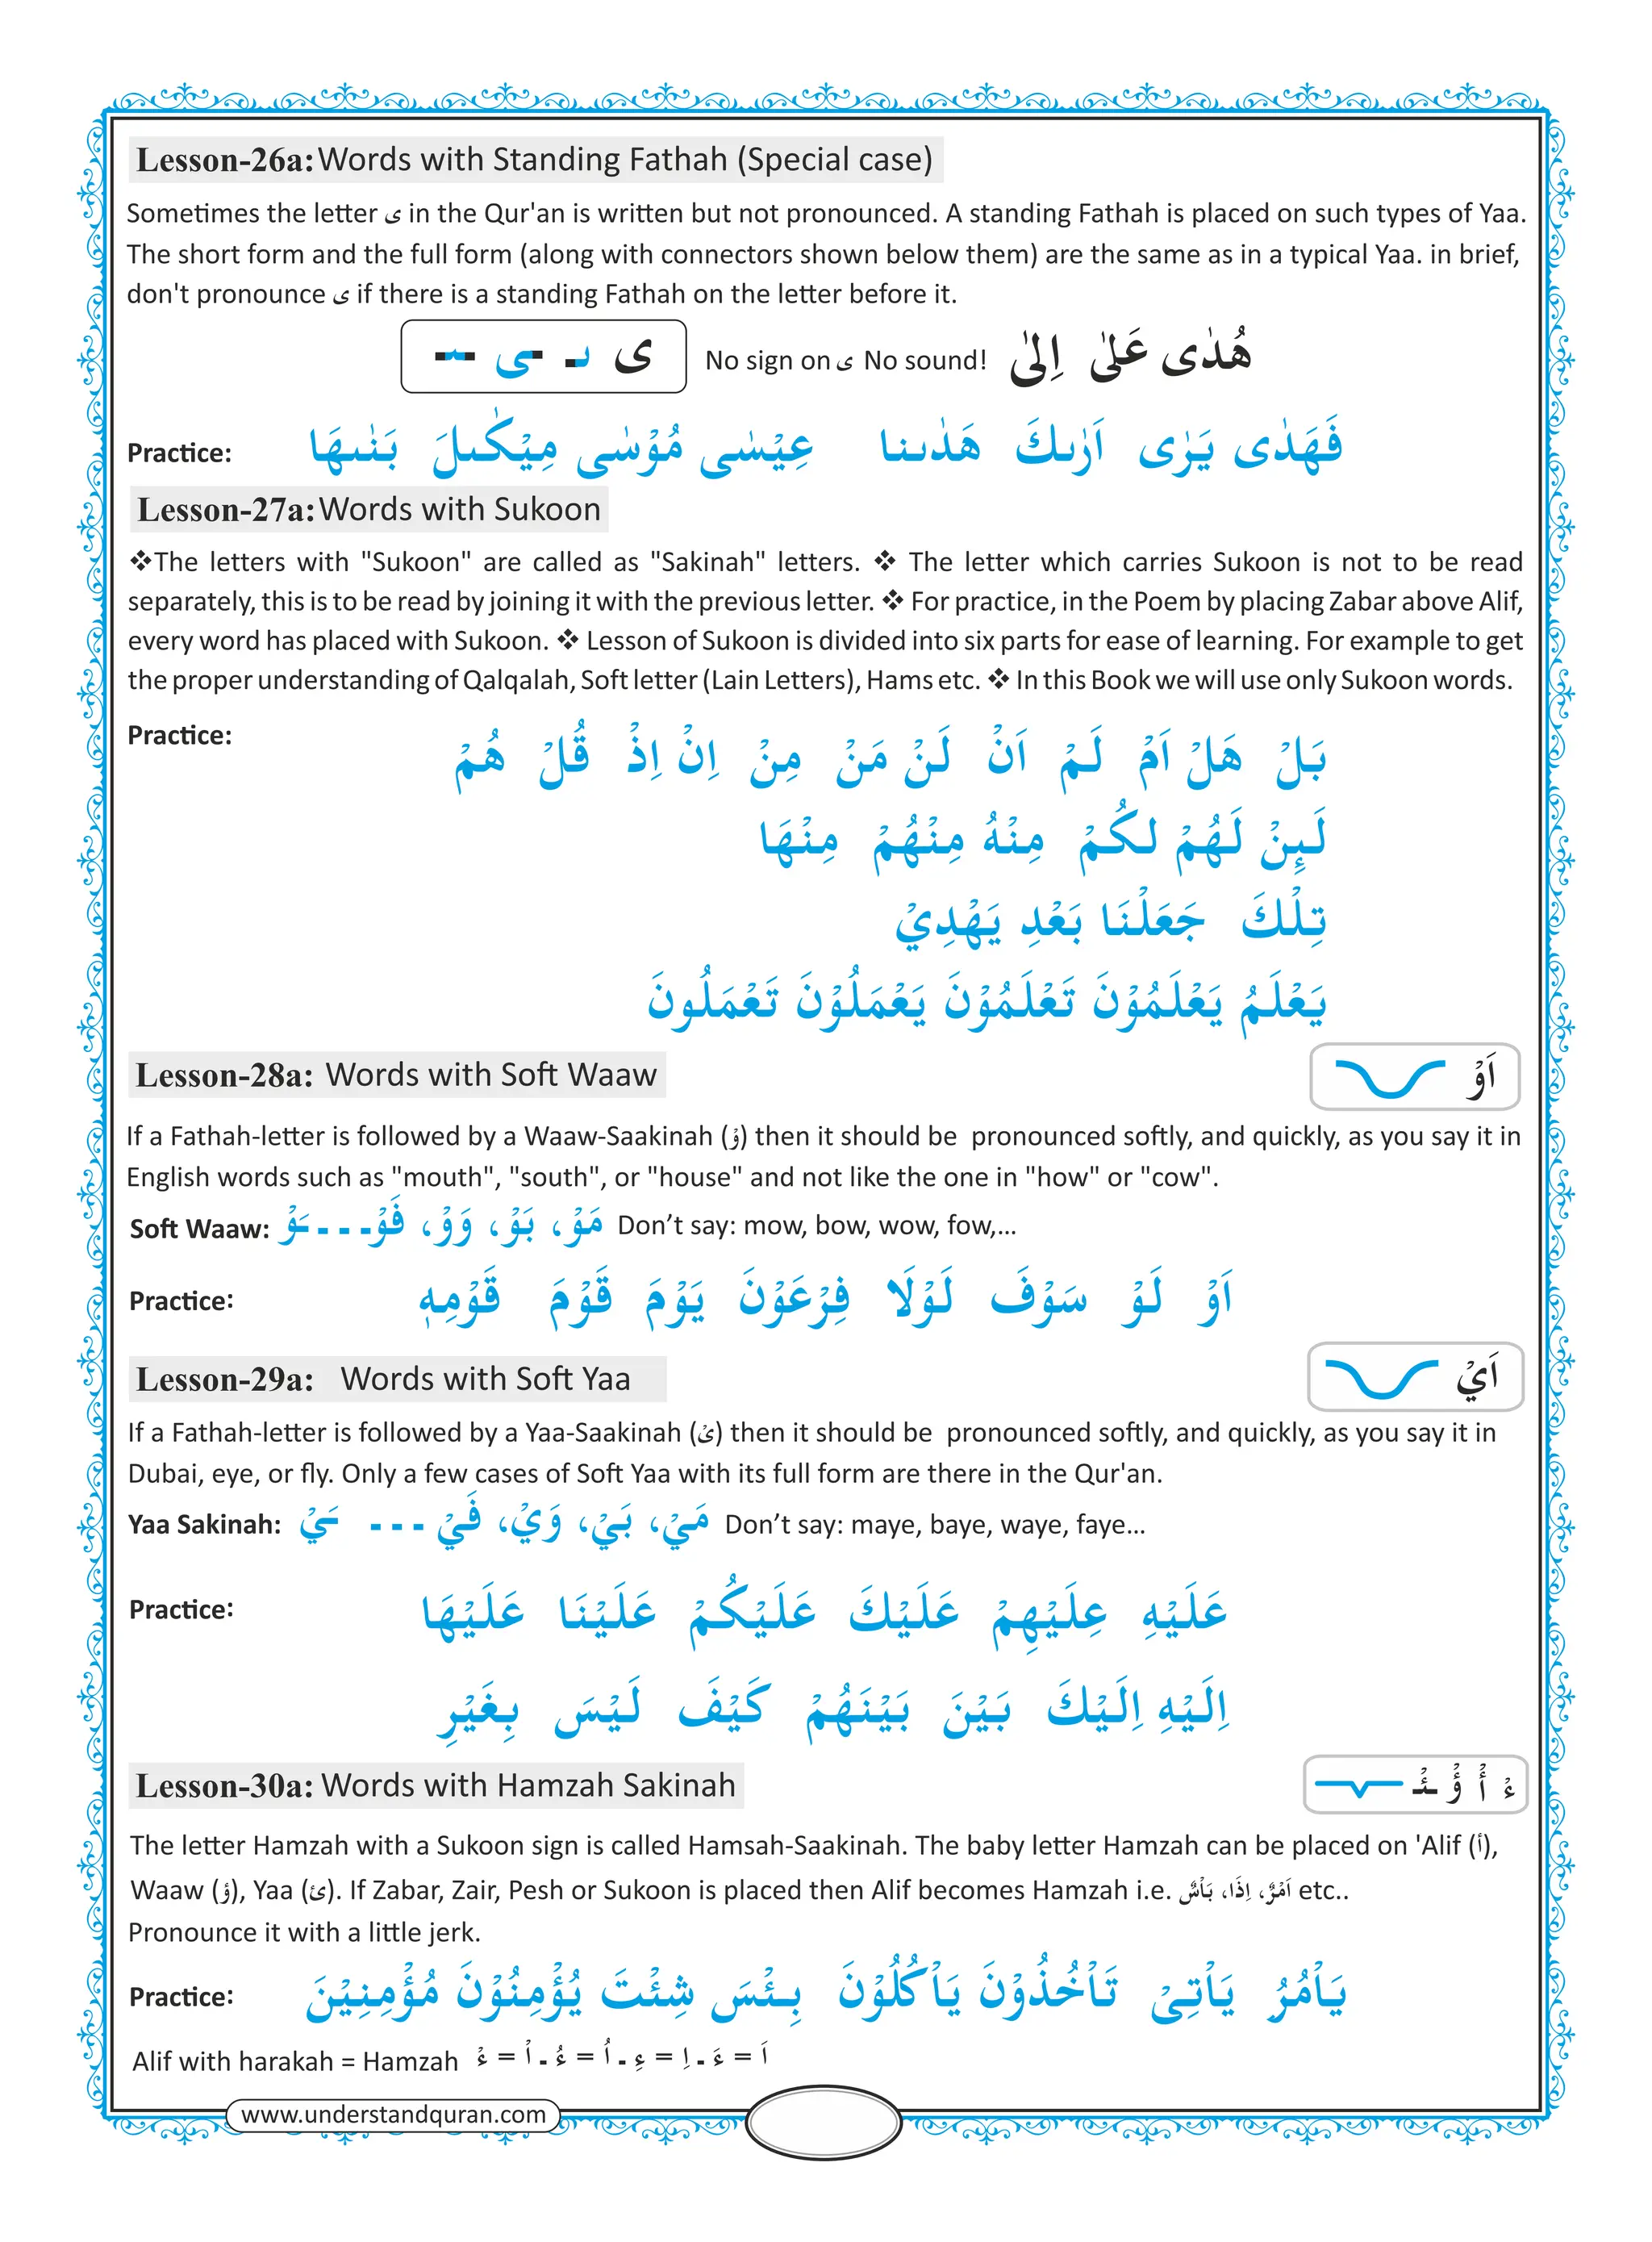 Lesson-26a: Words with Standing Fathah (Special case)
Sometimes the letter ى in the Qur'an is written but not pronounced. A standing Fathah is placed on such types of Yaa.
The short form and the full form (along with connectors shown below them) are the same as in a typical Yaa. in brief,
don't pronounce ى if there is a standing Fathah on the letter before it.
ى No sign on ى No sound! هُدٰى عَلٰى اِلٰى
Practice: فَهَدٰى يَرٰى اَرٰىكَ هَدٰىنا عِيْسٰى مُوْسٰى مِيْكٰىلَ بَنٰىهَا
Lesson-27a: Words with Sukoon
❖The letters with "Sukoon" are called as "Sakinah" letters. ❖ The letter which carries Sukoon is not to be read
separately, this is to be read by joining it with the previous letter. ❖ For practice, in the Poem by placing Zabar above Alif,
every word has placed with Sukoon. ❖ Lesson of Sukoon is divided into six parts for ease of learning. For example to get
the proper understanding of Qalqalah, Soft letter (Lain Letters), Hams etc. ❖ In this Book we will use only Sukoon words.
Practice: بَلْ هَلْ اَمْ لَمْ اَنْ لَنْ مَنْ مِنْ اِنْ اِذْ قُلْ هُمْ
لَىِٕنْ لَهُمْ لكُمْ مِنْهُ مِنْهُمْ مِنْهَا
تِلْكَ جَعَلْنَا بَعْدِ يَهْدِيْ
يَعْلَمُ يَعْلَمُوْنَ تَعْلَمُوْنَ يَعْمَلُوْنَ تَعْمَلُونَ
Lesson-28a: Words with Soft Waaw اَوْ
If a Fathah-letter is followed by a Waaw-Saakinah (وْ) then it should be pronounced softly, and quickly, as you say it in
English words such as "mouth", "south", or "house" and not like the one in "how" or "cow".
Soft Waaw: مَوْ، بَوْ، وَوْ، فَوْ - - - ـَوْ Don't say: mow, bow, wow, fow,...
Practice: اَوْ لَوْ سَوْفَ لَوْلَا فِرْعَوْنَ يَوْمَ قَوْمَ قَوْمِهٖ
Lesson-29a: Words with Soft Yaa اَيْ
If a Fathah-letter is followed by a Yaa-Saakinah (ىْ) then it should be pronounced softly, and quickly, as you say it in
Dubai, eye, or fly. Only a few cases of Soft Yaa with its full form are there in the Qur'an.
Yaa Sakinah: مَيْ، بَيْ، وَيْ، فَيْ - - - ـَيْ Don't say: maye, baye, waye, faye...
Practice: عَلَيْهِ عِلَيْهِمْ عَلَيْكَ عَلَيْكُمْ عَلَيْنَا عَلَيْهَا
اِلَيْهِ اِلَيْكَ بَيْنَ بَيْنَهُمْ كَيْفَ لَيْسَ بِغَيْرِ
Lesson-30a: Words with Hamzah Sakinah ءْ أْ ؤْ ـئْـ
The letter Hamzah with a Sukoon sign is called Hamsah-Saakinah. The baby letter Hamzah can be placed on 'Alif (أ),
Waaw (ؤ), Yaa (ئ). If Zabar, Zair, Pesh or Sukoon is placed then Alif becomes Hamzah i.e. اَمْرٌ، اِذَا، بَاْسٌ etc..
Pronounce it with a little jerk.
Practice: يَاْمُرُ يَاْتِىْ تَاْخُذُوْنَ يَاْكُلُوْنَ بِئْسَ شِئْتَ يُؤْمِنُوْنَ مُؤْمِنِيْنَ
Alif with harakah = Hamzah اَ = ءَ - اِ = ءِ - اُ = ءُ - اْ = ءْ
www.understandquran.com